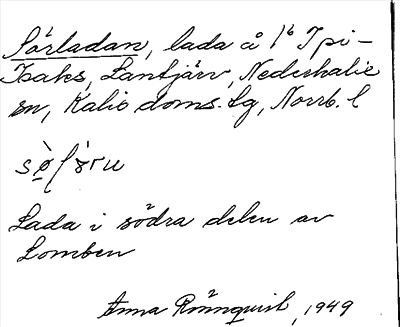 Sörladan, lada å 1⁶ Ipi-
Isaks, Lantjärv, Nederkalix
sn, Kalix doms. Lg, Norrb. l
Lada i södra delen av
Lomben
Anna Rönnquist, 1949